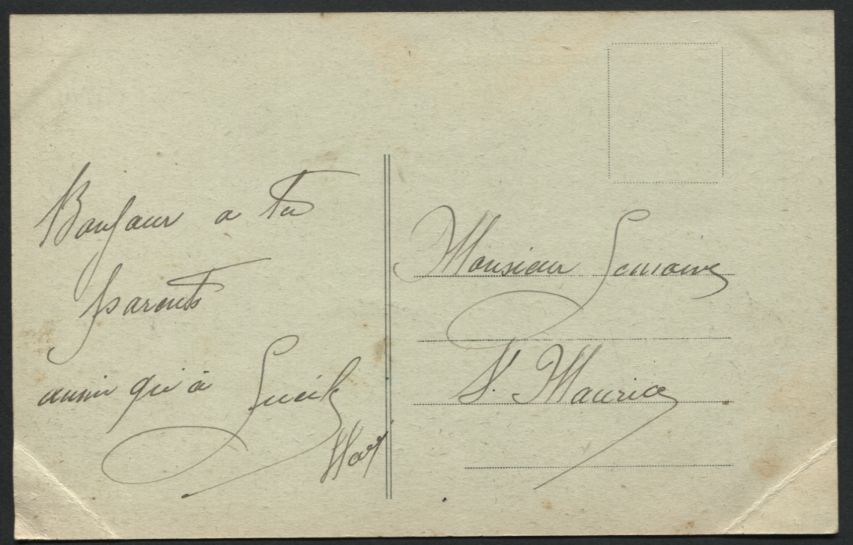 Bonjour a tes
parents
ainsi qu'à Lucile
Monsieur Lemaire
St. Maurice